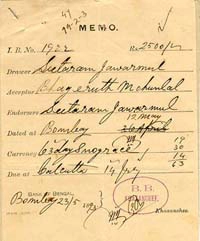 47
79-2-3
MEMO.
I. B. No. 1922 Rs 2500/-
Drawer Seetaram Jawarmul
Acceptor Bhageruth Mohunlal
Endorsers Seetaram Jawarmul
12 May
Dated at Bombay
Currency 63 days
19
30
14
63
Due at Calcutta 14 July
BANK OF BENGAL,
Bombay 23/5
B. B.
Khazanchee.